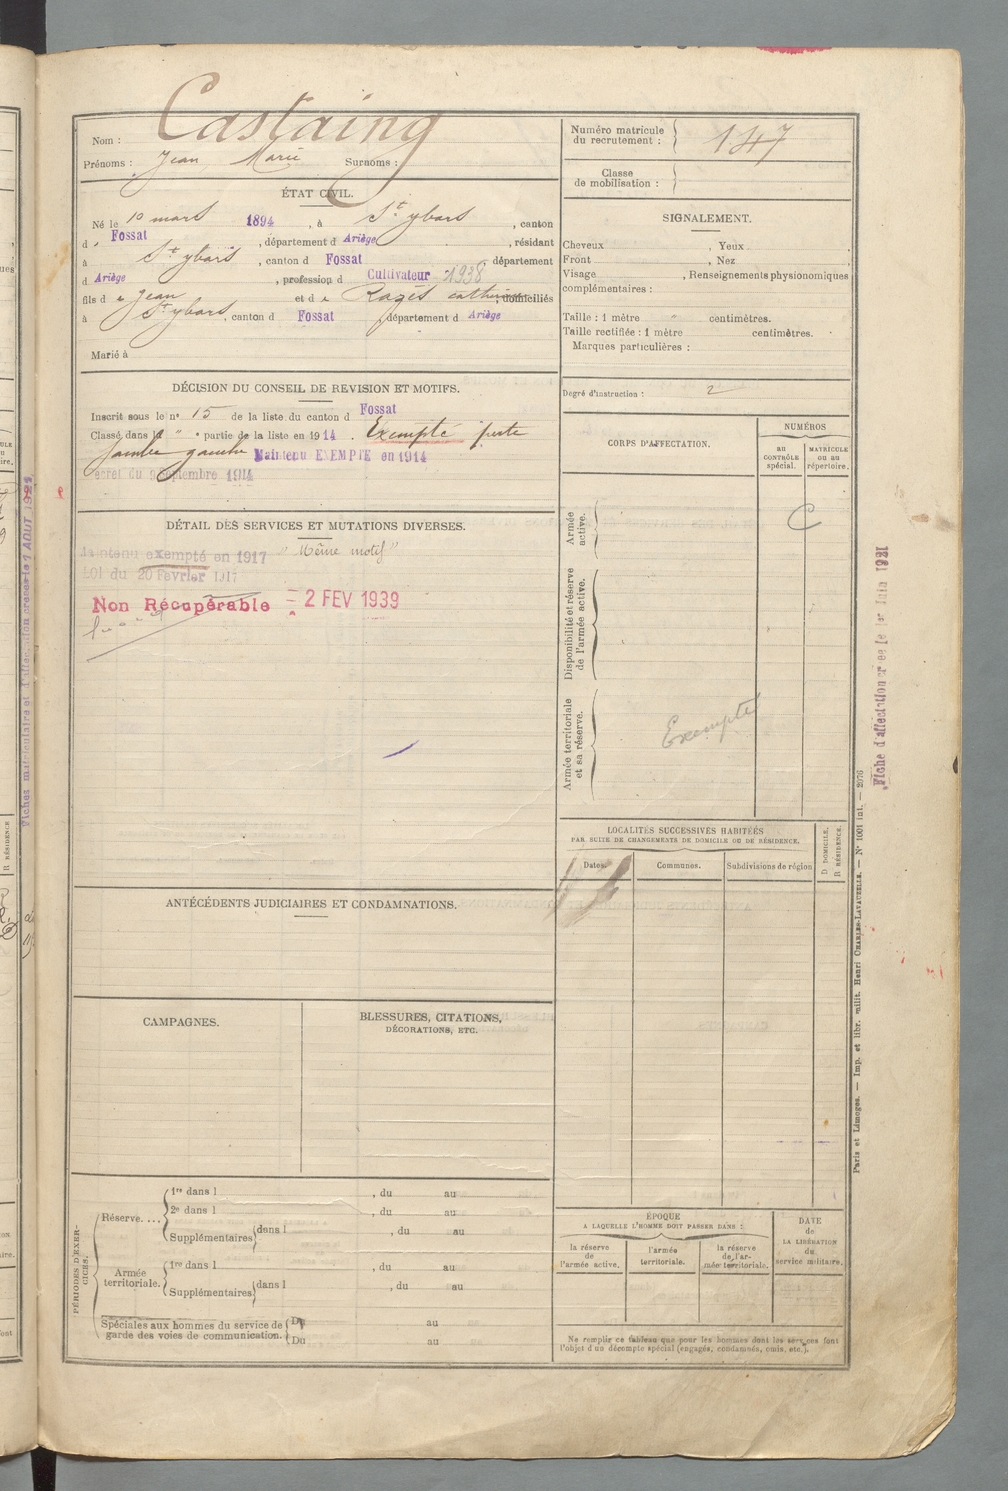 Castaing
Nom :
Prénoms : Jean Marie Surnoms :
ÉTAT CIVIL.
Né le 10 mars 1894, à St ybars, canton
d' Fossat, département d Ariège, résidant
à St ybars, canton d Fossat département
d Ariège, profession d Cultivateur 1938
fils de Jean et de Razès catherine, domiciliés
à St ybars, canton d Fossat département d Ariège
Marié à
DÉCISION DU CONSEIL DE REVISION ET MOTIFS.
Inscrit sous le n° 15 de la liste du canton d Fossat
Classé dans l " " partie de la liste en 1914. Exempté perte
jambe gauche Maintenu EXEMPTE en 1914
écret du 9 septembre 1914
DÉTAIL DES SERVICES ET MUTATIONS DIVERSES.
Maintenu exempté en 1917 " Même motif "
LOI du 20 Février 1917
Non Récupérable = 2 FEV 1939
ANTÉCÉDENTS JUDICIAIRES ET CONDAMNATIONS.
CAMPAGNES.
BLESSURES, CITATIONS,
DÉCORATIONS, ETC.
PÉRIODES D'EXER-
CICES.
Réserve....
1re dans l , du au
2e dans l , du au
Supplémentaires dans l , du au
Armée
territoriale.
1re dans l , du au
Supplémentaires dans l , du au
Spéciales aux hommes du service de
garde des voies de communication.
Du au
Du au
Numéro matricule
du recrutement : 147
Classe
de mobilisation :
SIGNALEMENT.
Cheveux , Yeux .
Front , Nez
Visage , Renseignements physionomiques
complémentaires :
Taille : 1 mètre " centimètres.
Taille rectifiée : 1 mètre centimètres.
Marques particulières :
Degré d'instruction : 2
CORPS D'AFFECTATION.
NUMÉROS
AU
CONTRÔLE
spécial.
MATRICULE
OU AU
répertoire.
Armée
active.
C
Disponibilité et réserve
de l'armée active.
Armée territoriale
et sa réserve.
Exempté
LOCALITÉS SUCCESSIVES HABITÉES
PAR SUITE DE CHANGEMENTS DE DOMICILE OU DE RÉSIDENCE.
Dates.
Communes.
Subdivisions de région
D DOMICILE,
R RÉSIDENCE.
ÉPOQUE
A LAQUELLE L'HOMME DOIT PASSER DANS :
la réserve
de
l'armée active.
l'armée
territoriale.
la réserve
de l'ar-
mée territoriale.
DATE
de
LA LIBÉRATION
du
service militaire.
Ne remplir ce tableau que pour les hommes dont les services font
l'objet d'un décompte spécial (engagés, condamnés, omis, etc.).
Paris et Limoges. — Imp. et libr. milit. Henri CHARLES-LAVAUZELLE. — N° 1001 int. — 2076
Fiche d'affectation créée le 1er Juin 1921
R RÉSIDENCE